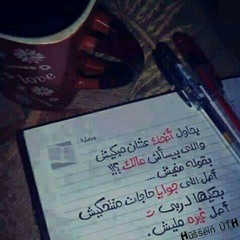 love
بحاول أضحك عشان مبكيش
واللى بيسألنى مالك ؟!!
بقوله مفيش ...
أصل اللى جوايا حاجات متتحكيش
بحكيها لربى
أصل غيره مليش.
Hussein OTH